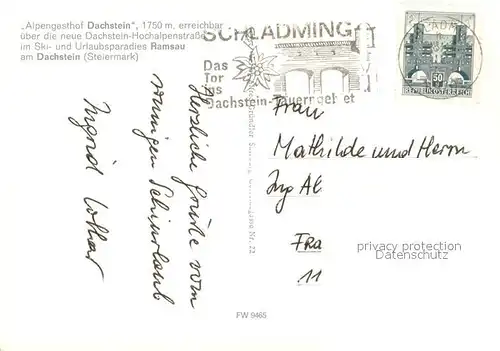 „Alpengasthof Dachstein", 1750 m, erreichbar
über die neue Dachstein-Hochalpenstraße
im Ski- und Urlaubsparadies Ramsau
am Dachstein (Steiermark)
SCHLADMING
Das
Tor
ins
Dachstein-Tauerngebiet
50
REPUBLIK ÖSTERREICH
Herzliche Grüße vom
sonnigen Schiurlaub
Ingrid Lothar
Frau
Mathilde und Herrn
Ing Al
Fra
11
privacy protection
AK-Ansichtskarten.de
FW 9465